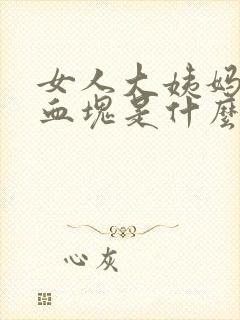 女人大姨妈
血塊是什麼
心灰